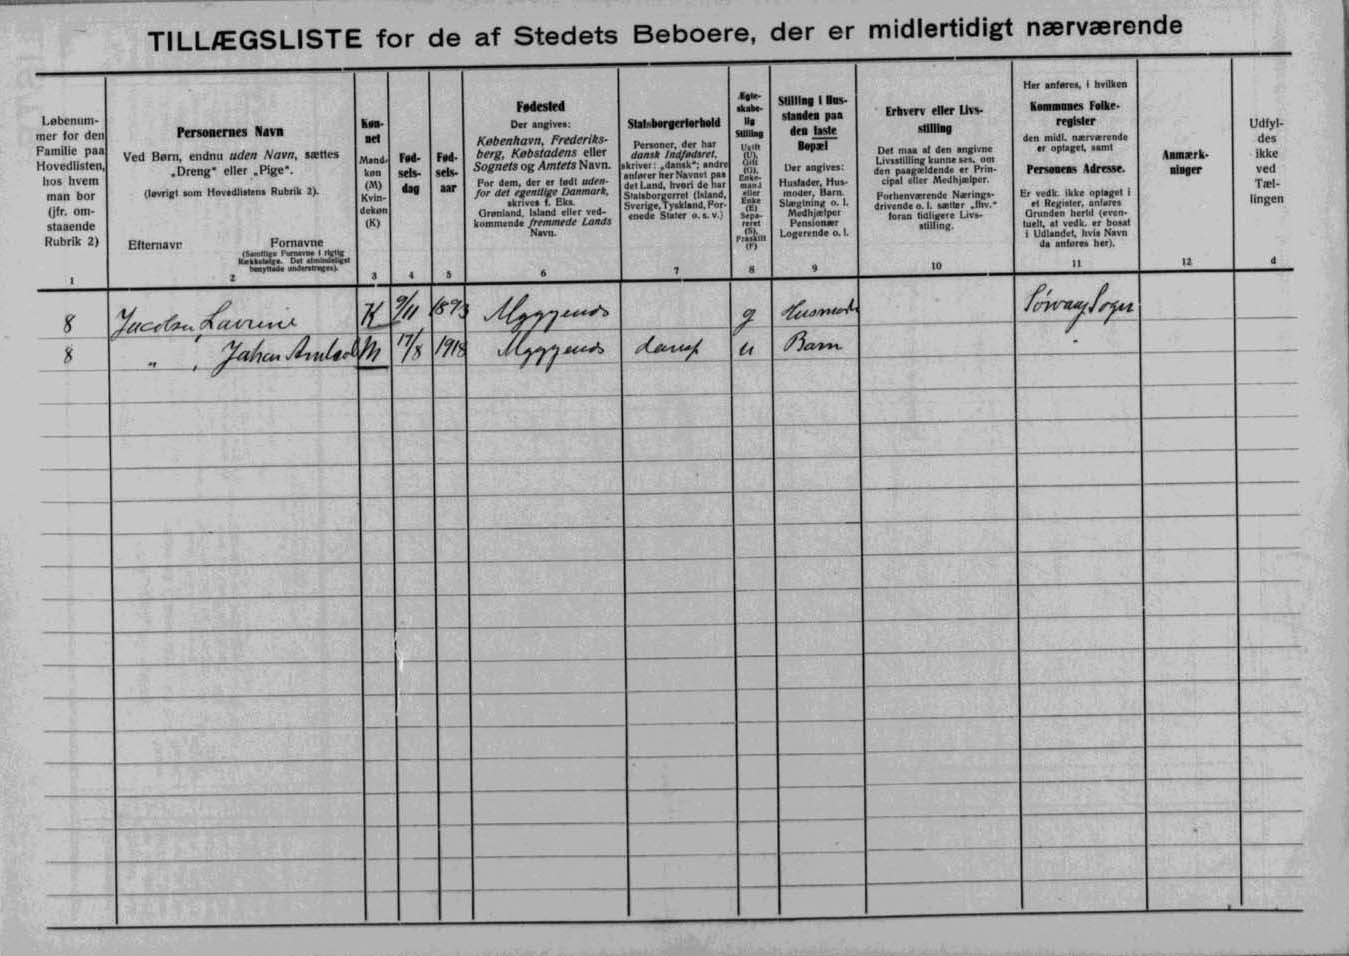 TILLÆGSLISTE for de af Stedets Beboere, der er midlertidigt nærværende
Løbenum-
mer for den
Familie paa
Hovedlisten,
hos hvem
man bor
(jfr. om-
staaende
Rubrik 2)
1
Personernes Navn
Ved Børn, endnu uden Navn, sættes
„Dreng“ eller „Pige“.
(Iøvrigt som Hovedlistens Rubrik 2).
Efternavn Fornavne
(Samtlige Fornavne i rigtig
Rækkefølge. Det almindeligst
benyttede understreges).
2
Køn-
net
Mand-
køn
(M)
Kvin-
dekøn
(K)
3
Fød-
sels-
dag
4
Fød-
sels-
aar
5
Fødested
Der angives:
København, Frederiks-
berg, Købstadens eller
Sognets og Amtets Navn.
For dem, der er født uden-
for det egentlige Danmark,
skrives f. Eks.
Grønland, Island eller ved-
kommende fremmede Lands
Navn.
6
Statsborgerforhold
Personer, der har
dansk Indfødsret,
skriver: „dansk“; andre
anfører her Navnet paa
det Land, hvori de har
Statsborgerret (Island,
Sverige, Tyskland, For-
enede Stater o. s. v.)
7
Ægte-
skabe-
lig
Stilling
Ugift
(U),
Gift
(G),
Enke-
mand
eller
Enke
(E)
Sepa-
reret
(S),
Fraskilt
(F)
8
Stilling i Hus-
standen paa
den faste
Bopæl
Der angives:
Husfader, Hus-
moder, Barn,
Slægtning o. l.
Medhjælper
Pensionær
Logerende o. l.
9
Erhverv eller Livs-
stilling
Det maa af den angivne
Livsstilling kunne ses, om
den paagældende er Prin-
cipal eller Medhjælper.
Forhenværende Nærings-
drivende o. l. sætter „fhv.“
foran tidligere Livs-
stilling.
10
Her anføres, i hvilken
Kommunes Folke-
register
den midl. nærværende
er optaget, samt
Personens Adresse.
Er vedk. ikke optaget i
et Register, anføres
Grunden hertil (even-
tuelt, at vedk. er bosat
i Udlandet, hvis Navn
da anføres her).
11
Anmærk-
ninger
12
Udfyl-
des
ikke
ved
Tæl-
lingen
d
8 Jacobsen, Lavrine K 9/11 1893 Myggenæs g Husmoder Sörvaag Sogn
8 „ , Johan M 17/8 1918 Myggenæs dansk u Barn "